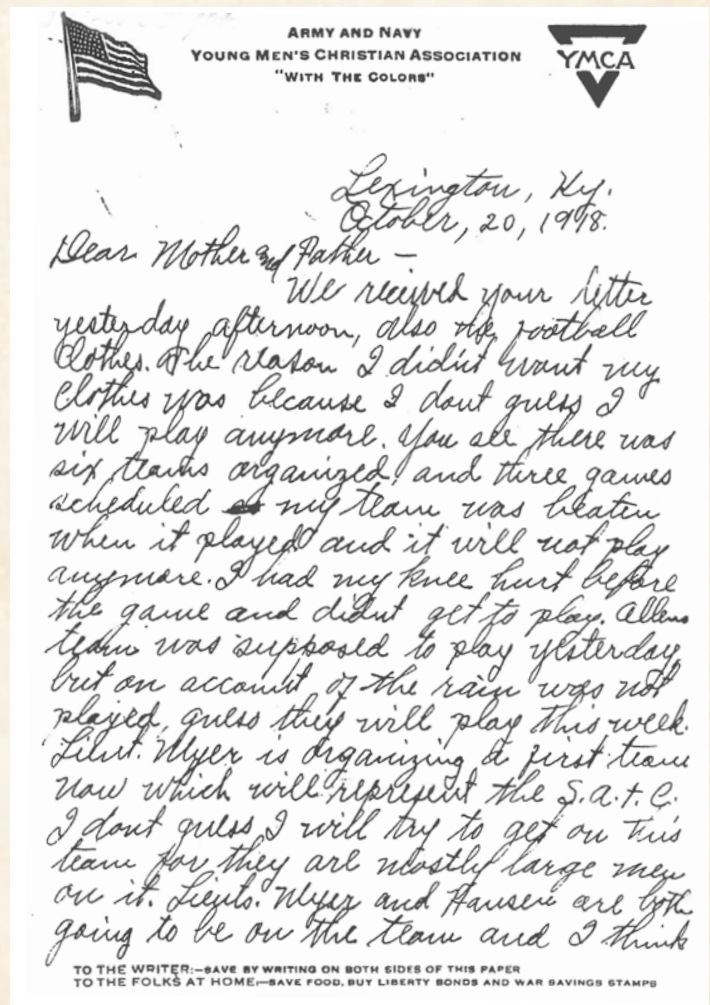 ARMY AND NAVY
YOUNG MEN'S CHRISTIAN ASSOCIATION
"WITH THE COLORS"
YMCA
Lexington, Ky.
October, 20, 1918.
Dear Mother and Father —
We received your letter
yesterday afternoon, also the football
clothes. The reason I didn't want my
clothes was because I dont guess I
will play anymore. You see there was
six teams organized, and three games
scheduled my team was beaten
when it played and it will not play
anymore. I had my knee hurt before
the game and didnt get to play. Allens
team was supposed to play yesterday,
but on account of the rain was not
played, guess they will play this week.
Lieut. Myer is organizing a first team
now which will represent the S.A.T.C.
I dont guess I will try to get on this
team for they are mostly large men
on it. Lieuts. Myer and Hansen are both
going to be on the team and I think
TO THE WRITER:—SAVE BY WRITING ON BOTH SIDES OF THIS PAPER
TO THE FOLKS AT HOME:—SAVE FOOD, BUY LIBERTY BONDS AND WAR SAVINGS STAMPS